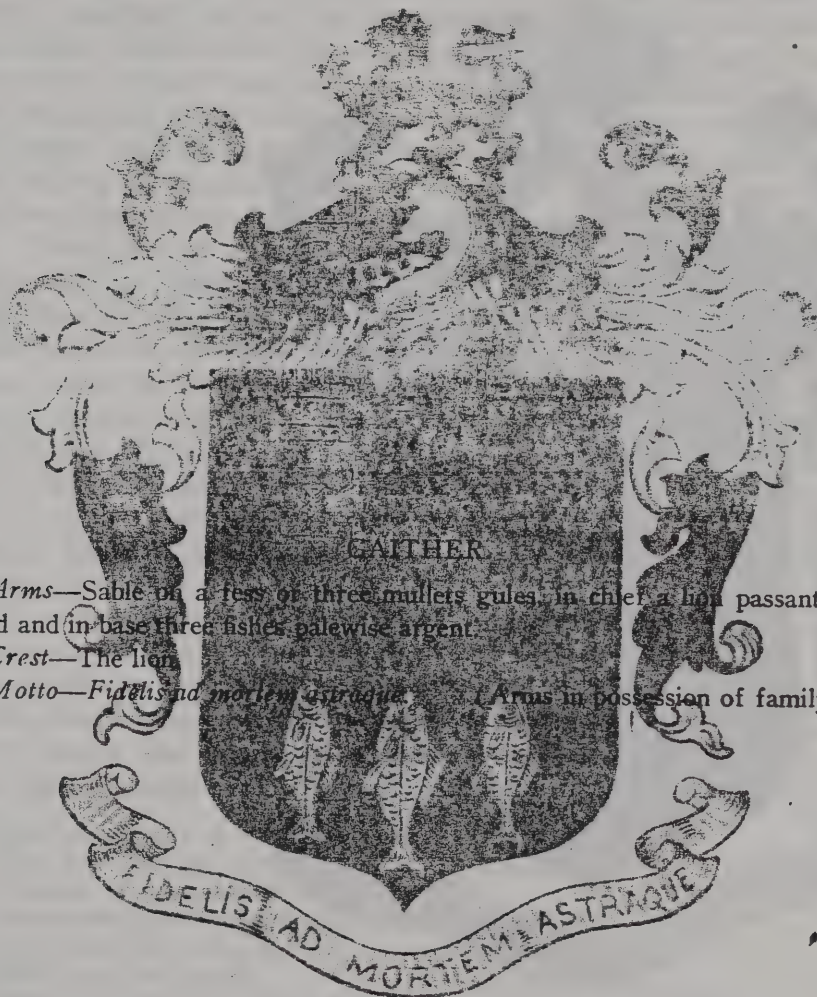 GAITHER
Arms—Sable on a fess or three mullets gules, in chief a lion passant
d and in base three fishes palewise argent.
Crest—The lion.
Motto—Fidelis ad mortem astraque. (Arms in possession of family
FIDELIS AD MORTEM ASTRAQUE